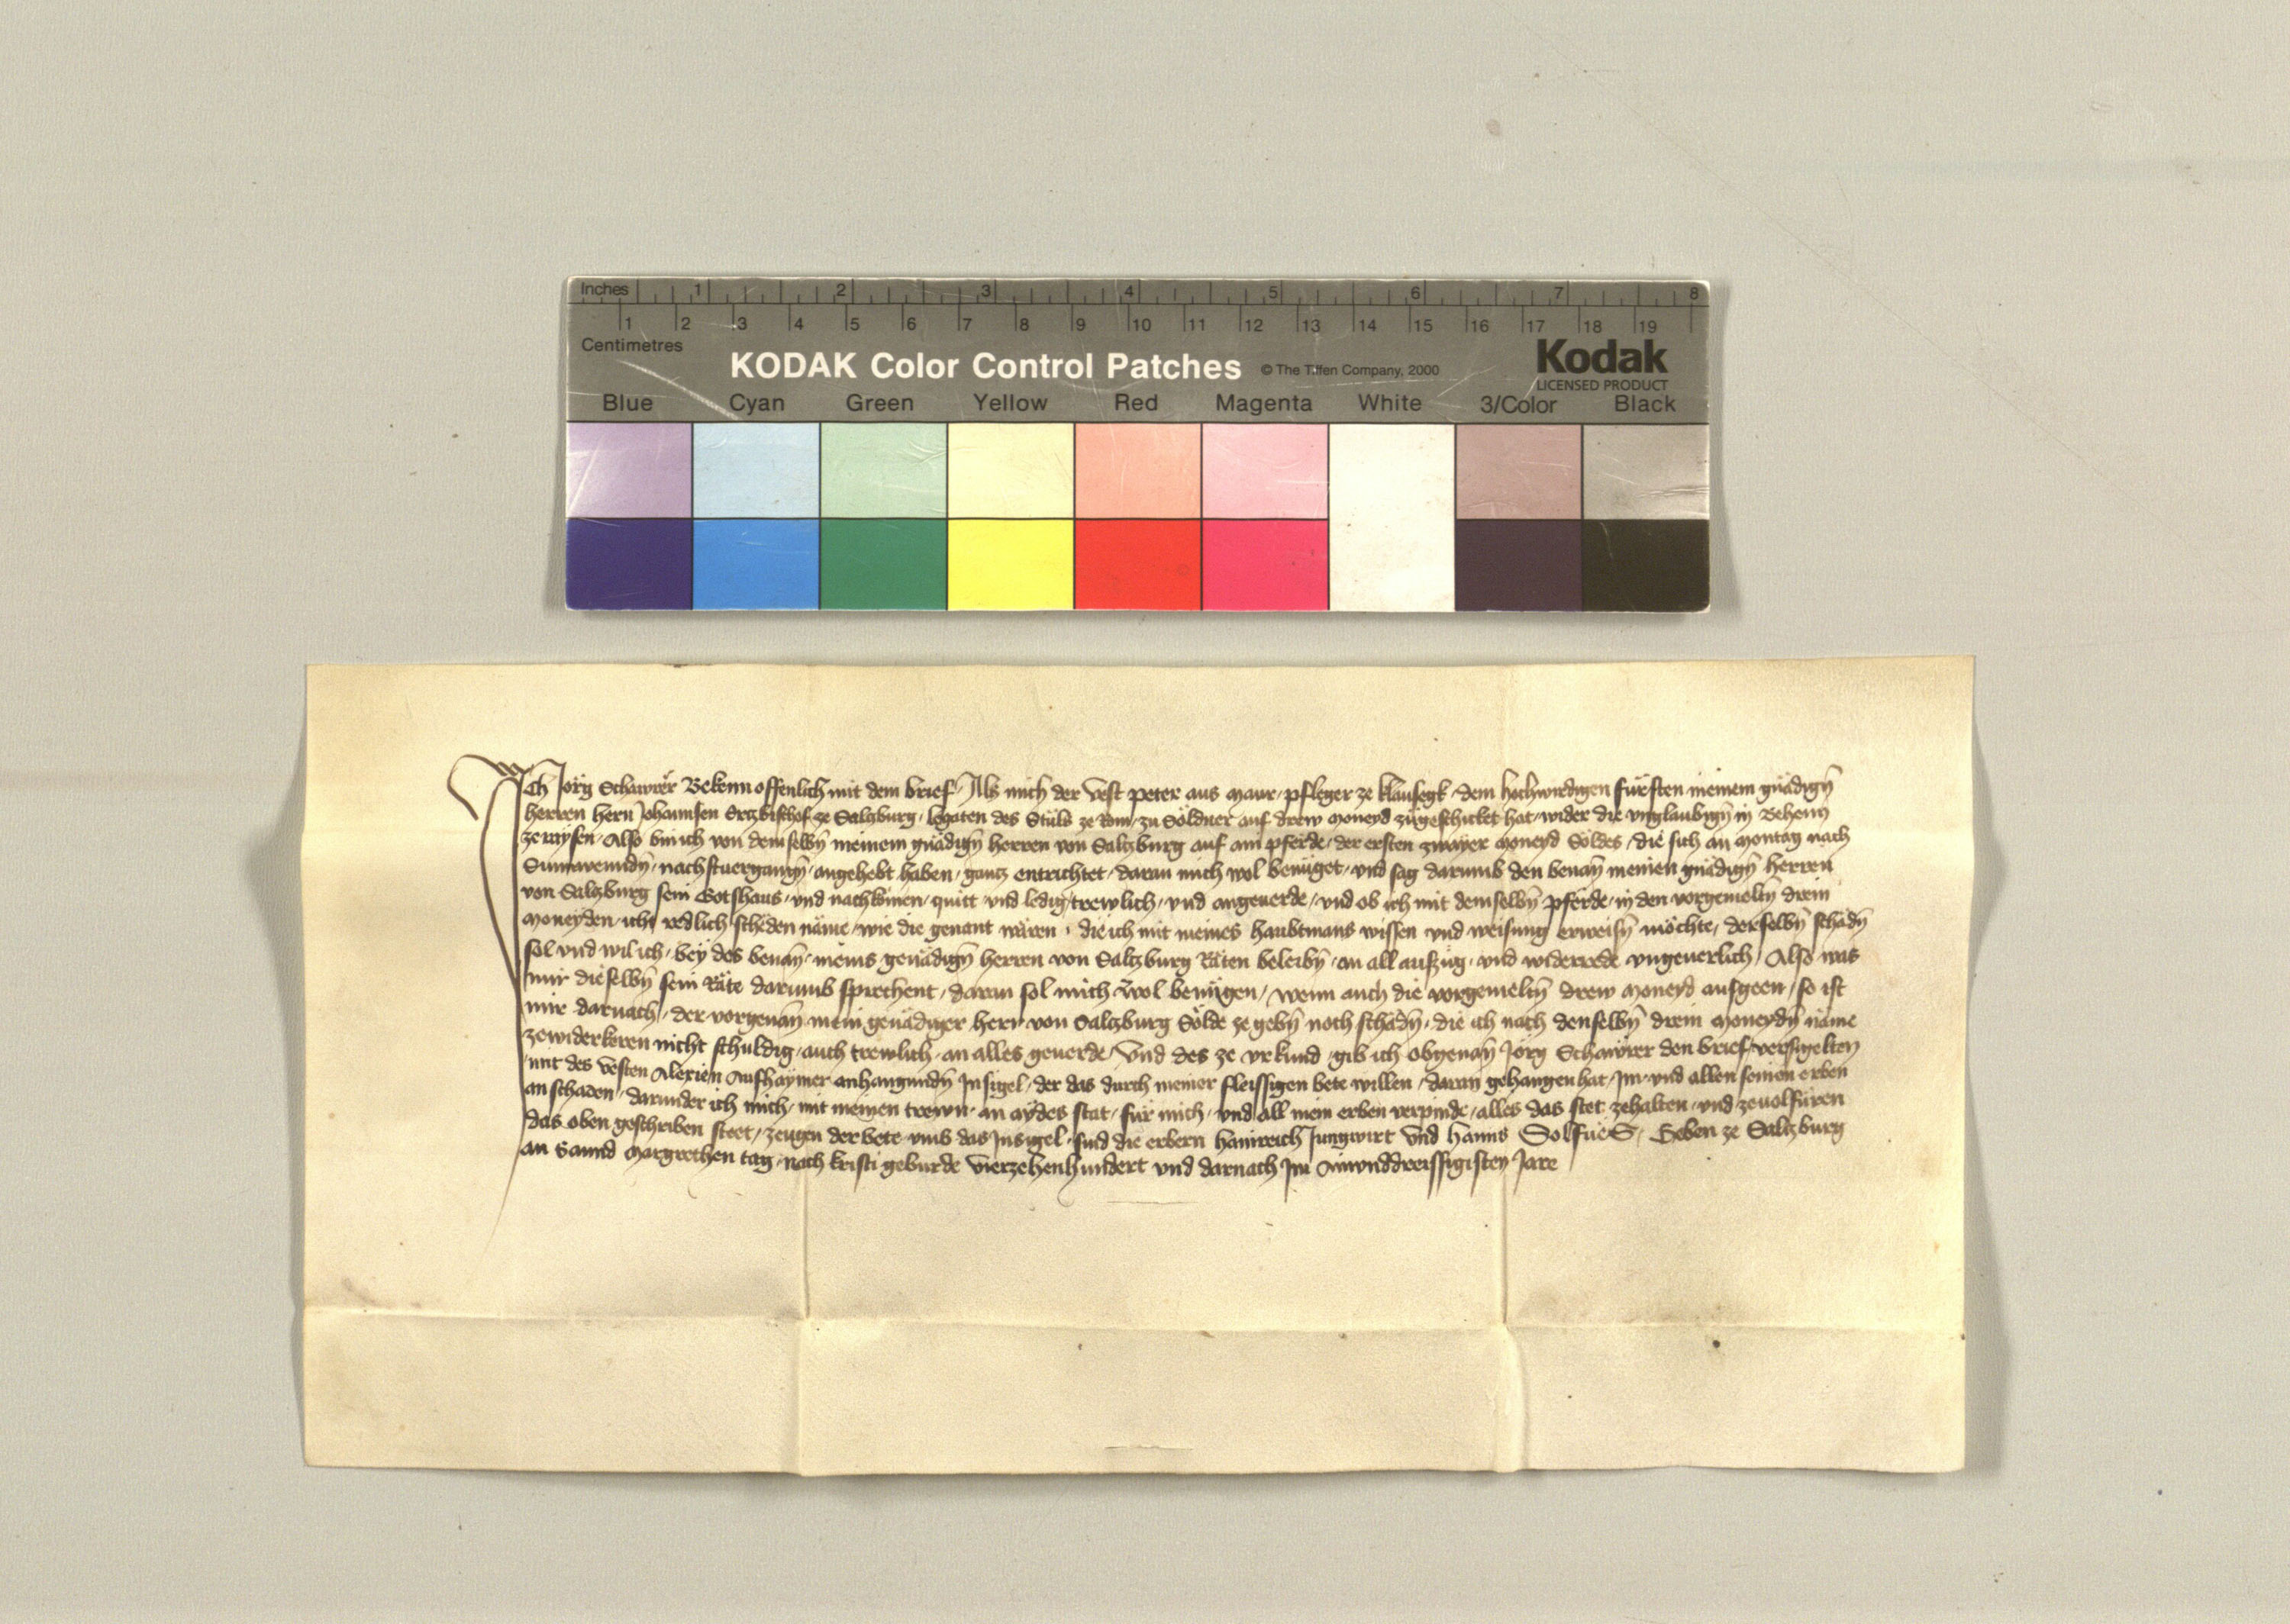 Inches 1 2 3 4 5 6 7 8
1 2 3 4 5 6 7 8 9 10 11 12 13 14 15 16 17 18 19
Centimetres
KODAK Color Control Patches © The Tiffen Company, 2000 Kodak
LICENSED PRODUCT
Blue Cyan Green Yellow Red Magenta White 3/Color Black
Ich Jörg Schawrer Bekenn offenlich mit dem brief, Als mich der vest peter aus maur, pfleger ze klausegk, dem hochwirdigen fürsten meinem gnädign̄
herren hern Johannsen Ertzbischof ze Saltzburg, legaten des Stůls ze Rom, zu Söldner auf drew moneyd zůgeschicket hat, wider die vnglaubign̄ in Behem
ze raysen, Also bin ich von demselbn̄ meinem gnädign̄ herren von Saltzburg auf ain pferde, der ersten zwayer moneyd Söldes, die sich an montag nach
Sunnwenndn̄, nachstuergangn̄, angehebt haben, gantz entrichtet, daran mich wol benüget, vnd sag darumb den benan̄ meinen gnädign̄ herren
von Saltzburg sein Gotshaus, vnd nachkömen, quitt vnd ledig, trewlich, vnd angeuerde, vnd ob ich mit demselbn̄ pferde, in den vorgemeltn̄ drein
moneyden, icht redlich schëden näme, wie die genant wären, die ich mit meines haubtmans wissen vnd weisung erweisn̄ möchte, derselbn̄ schädn̄
sol vnd wil ich, bey des benan̄, meins genädign̄ herren von Saltzburg Räten beleibn̄, an all aufzüg, vnd widerrede vngeuerlich, Also was
mir dieselbn̄ sein Räte darumb sprechent, daran sol mich wol benügen, wenn auch die vorgemeltn̄ drew moneyd ausgeen, so ist
mir darnach, der vorgenan̄ mein genädiger herr von Saltzburg Sölde ze gebn̄ noch schädn̄, die ich nach denselbn̄ drein moneydn̄ näme
zewiderkeren nicht schuldig, auch trewlich, an alles geuerde, Vnd des ze vrkund, gib ich obgenan̄ Jörg Schawrer den brief, versigelten
mit des vesten Alexien Aufhaymer anhangundn̄ Insigel, der das durch meiner fleissigen bete willen, daran gehangen hat, Im, vnd allen seinen erben
an schaden, darunder ich mich, mit meinen trewn, an aydes stat, für mich, vnd all mein erben verpinde, alles das stet zehalten, vnd zeuolfüren
das oben geschriben steet, zeugen der bete vmb das Insigel, sind die erbern hainreich Jungwirt vnd hanns Solfües, Geben ze Saltzburg
an Sannd margrethen tag, nach kristi geburde vierzehenhundert vnd darnach Im Ainunddreissigisten Jare